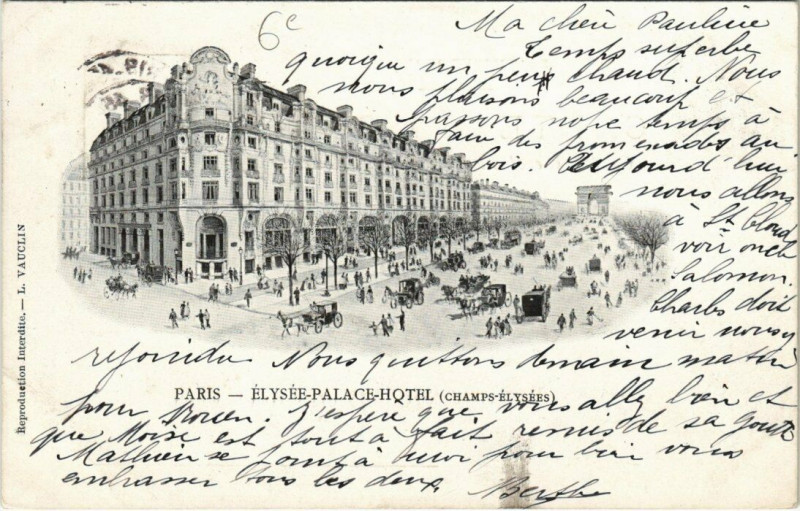 6c
Ma chère Pauline
Temps superbe
quoique un peu chaud. Nous
nous plaisons beaucoup et
passons notre temps à
faire des promenades au
bois. Aujourd'hui
nous allons
à St Cloud
voir oncle
Salomon.
Charles doit
venir nous y
rejoindre Nous quittons demain matin
PARIS — ÉLYSÉE-PALACE-HOTEL (CHAMPS-ÉLYSÉES)
pour Rouen. J'espère que vous allez bien et
que Moïse est tout à fait remis de sa goutte
Mathieu se joint à moi pour bien vous
embrasser tous les deux
Berthe
Reproduction Interdite. — L. VAUCLIN